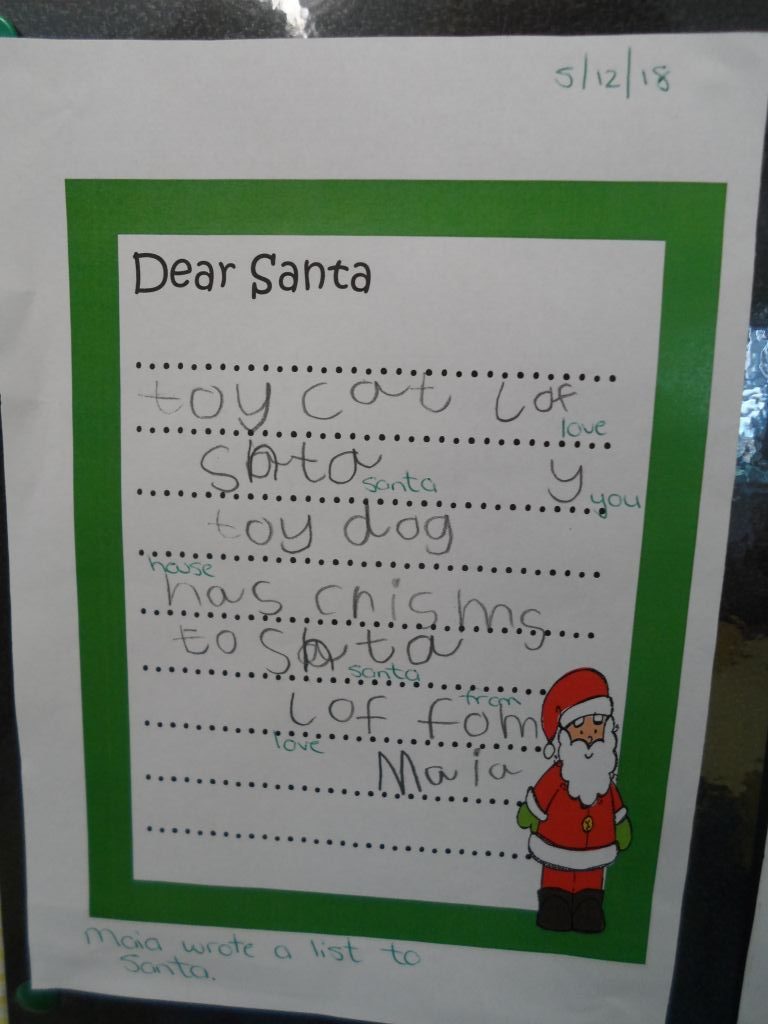 5/12/18
Dear Santa
toy cat lof
love
Santa y
santa you
toy dog
house
has chisms
to Santa
santa
from
lof fom
love
Maia
Maia wrote a list to
Santa.